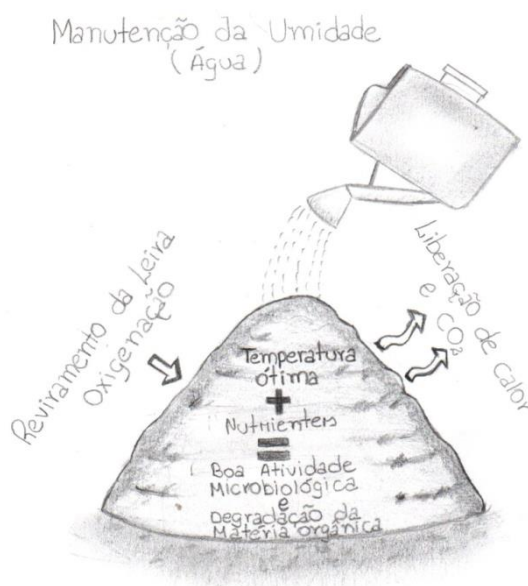 Manutenção da Umidade
(Água)
Reviramento da Leira
Oxigenação
Liberação de calor
e CO2
Temperatura
ótima
+
Nutrientes
=
Boa Atividade
Microbiológica
e
Degradação da
Matéria orgânica